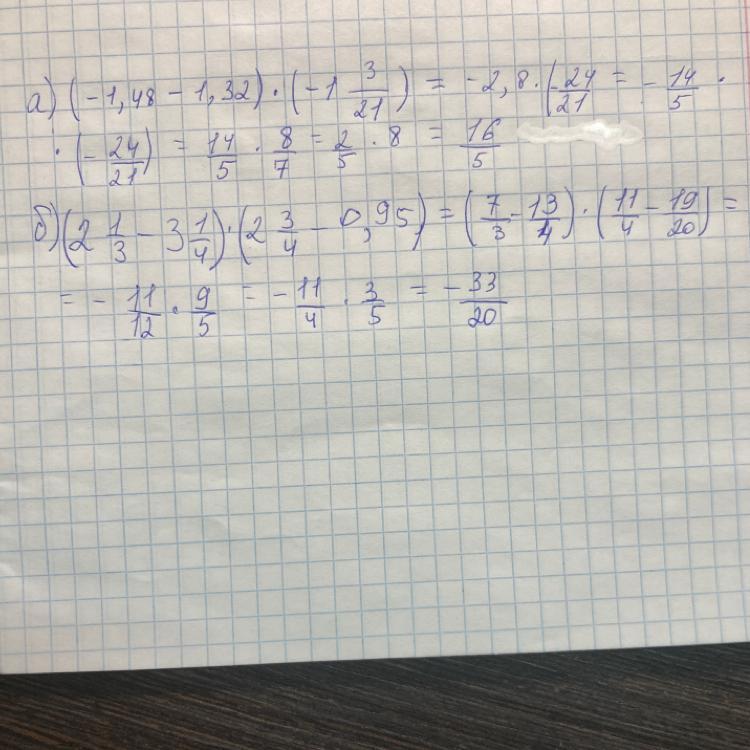 а) (-1,48 - 1,32) · (-1 3/21) = -2,8 · (-24/21 = -14/5 ·
· (-24/21) = 14/5 · 8/7 = 2/5 · 8 = 16/5
б) (2 1/3 - 3 1/4) · (2 3/4 - 0,95) = (7/3 - 13/4) · (11/4 - 19/20) =
= - 11/12 · 9/5 = - 11/4 · 3/5 = - 33/20